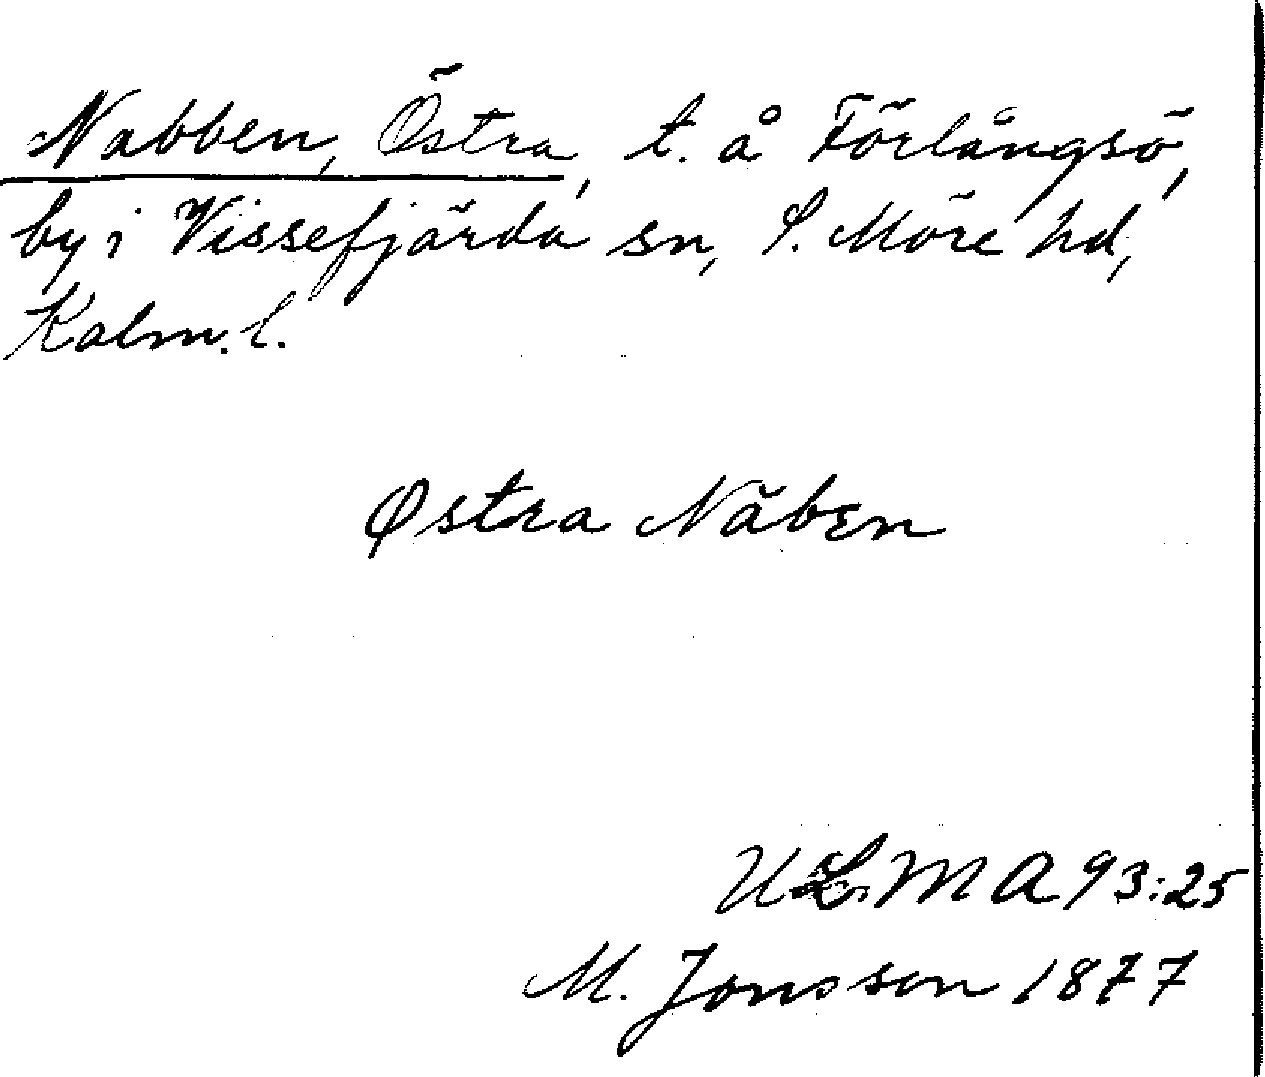 Nabben, Östra, t. å Förlångsö,
by i Vissefjärda sn, S. Möre hd,
Kalm. l.
Østra Năben
ULMA 93:25
M. Jonsson 1877